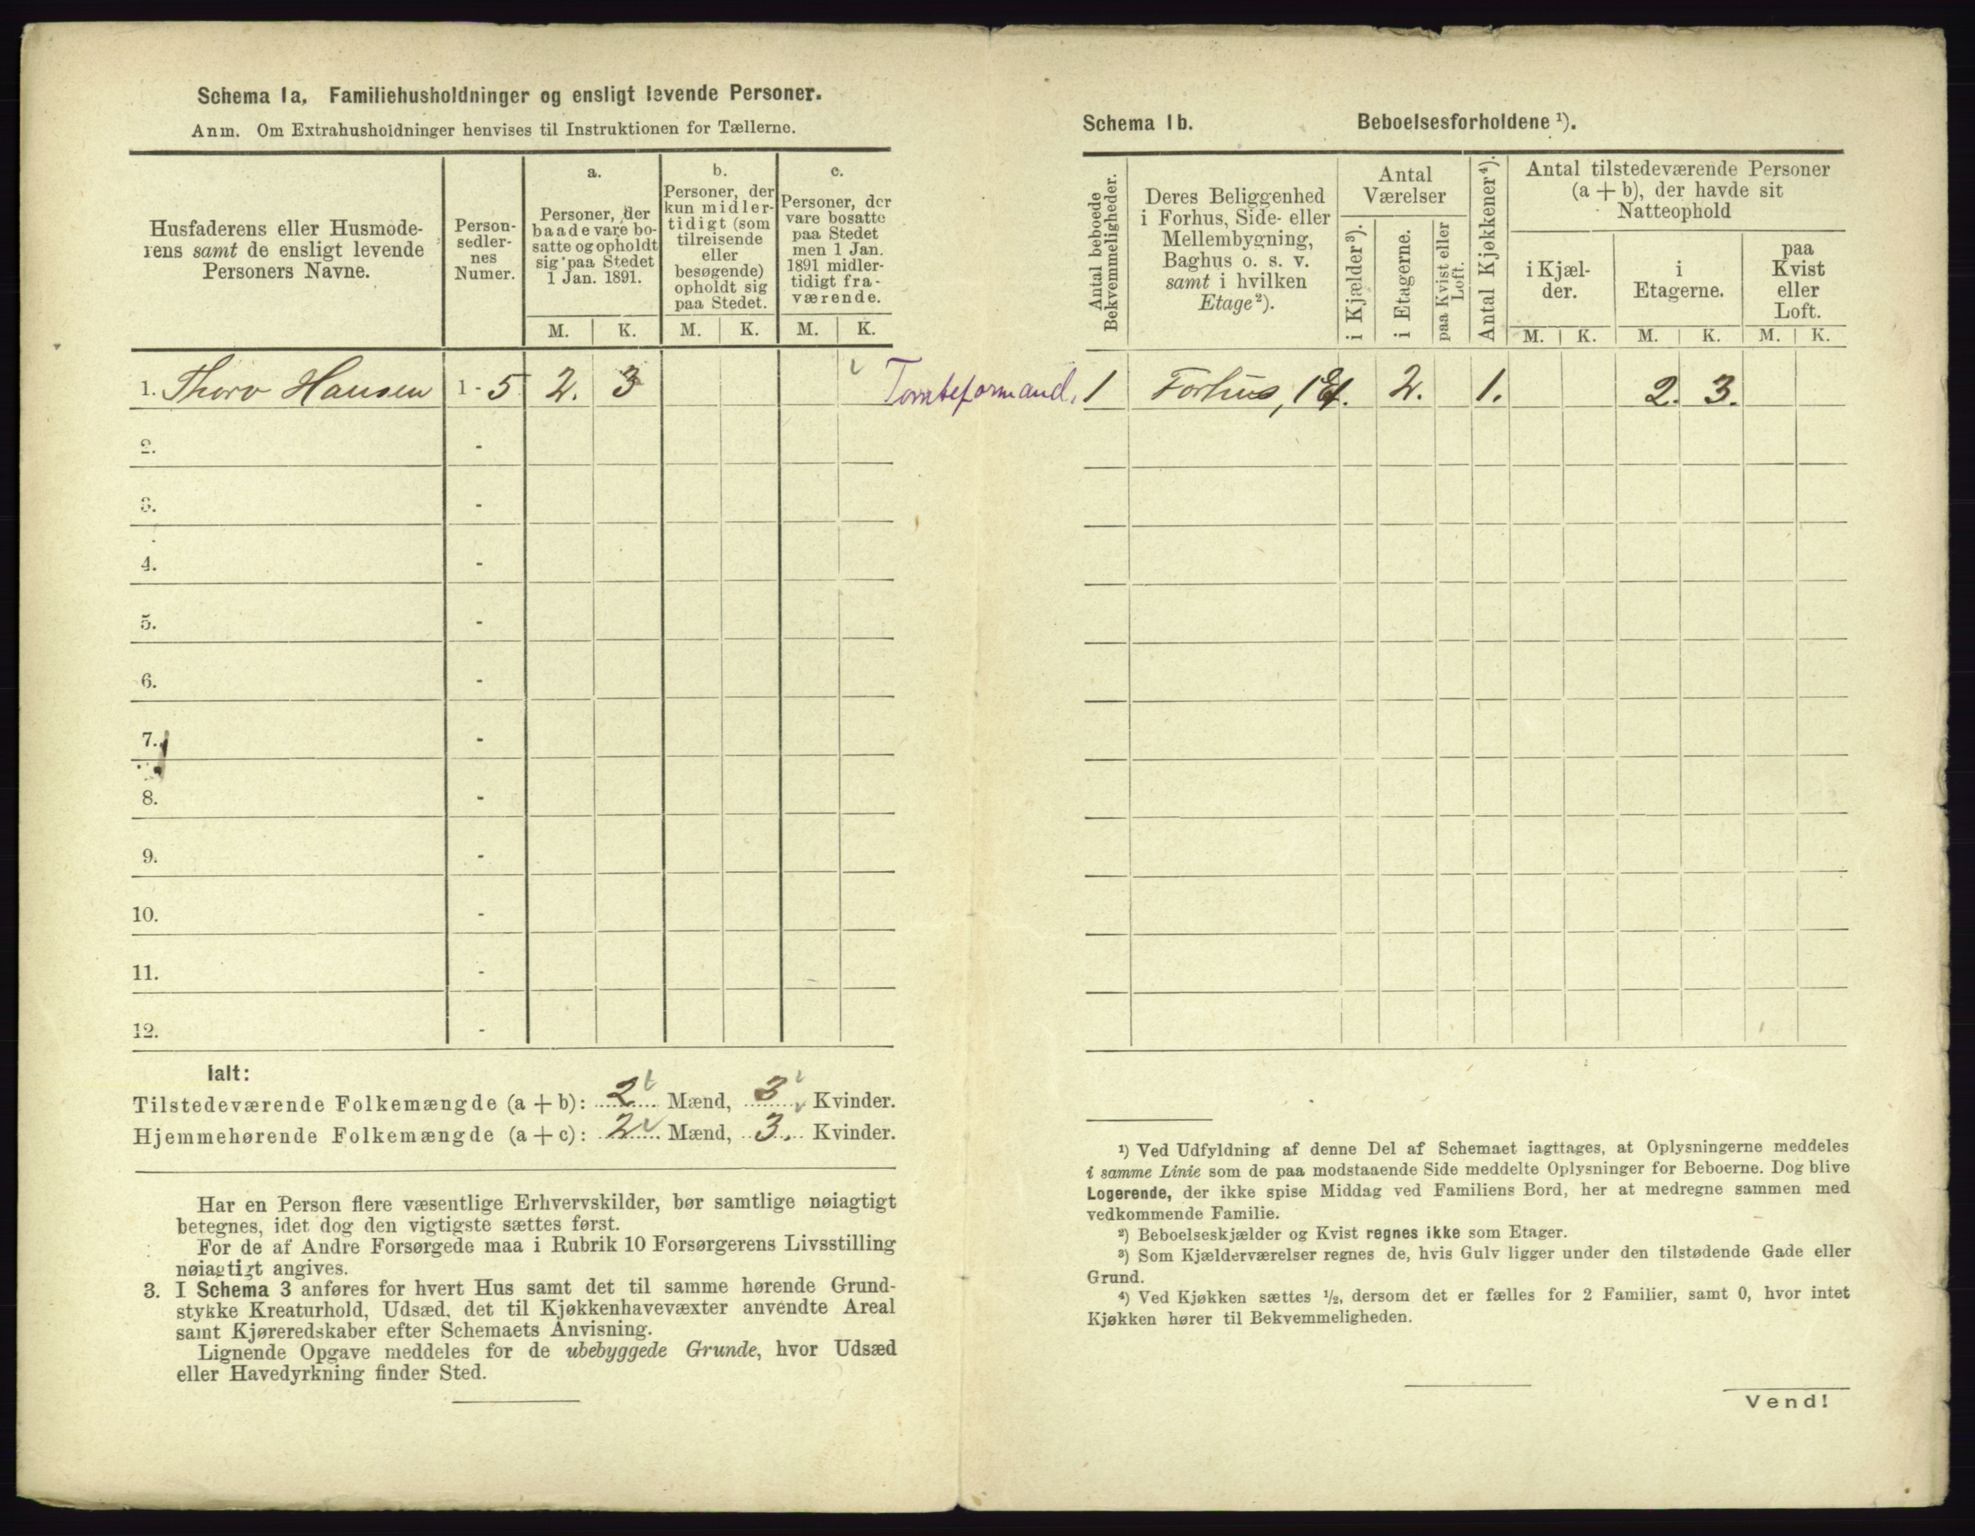 Schema 1a. Familiehusholdninger og ensligt levende Personer.
Anm. Om Extrahusholdninger henvises til Instruktionen for Tællerne.
Husfaderens eller Husmode-
rens samt de ensligt levende
Personers Navne.
Person-
sedler-
nes
Numer.
a.
Personer, der
baade vare bo-
satte og opholdt
sig paa Stedet
1 Jan. 1891.
b.
Personer, der
kun midler-
tidigt (som
tilreisende
eller
besøgende)
opholdt sig
paa Stedet.
c.
Personer, der
vare bosatte
paa Stedet
men 1 Jan.
1891 midler-
tidigt fra-
værende.
M. K. M. K. M. K.
1. Thorv Hansen 1 - 5 2. 3 Tomteformand.
2. -
3. -
4. -
5. -
6. -
7. -
8. -
9. -
10. -
11. -
12. -
Ialt:
Tilstedeværende Folkemængde (a + b): 2 Mænd, 3 Kvinder.
Hjemmehørende Folkemængde (a + c): 2 Mænd, 3. Kvinder.
Har en Person flere væsentlige Erhvervskilder, bør samtlige nøiagtigt
betegnes, idet dog den vigtigste sættes først.
For de af Andre Forsørgede maa i Rubrik 10 Forsørgerens Livsstilling
nøiagtigt angives.
3. I Schema 3 anføres for hvert Hus samt det til samme hørende Grund-
stykke Kreaturhold, Udsæd, det til Kjøkkenhavevæxter anvendte Areal
samt Kjøreredskaber efter Schemaets Anvisning.
Lignende Opgave meddeles for de ubebyggede Grunde, hvor Udsæd
eller Havedyrkning finder Sted.
Schema 1b. Beboelsesforholdene ¹).
Antal beboede
Bekvemmeligheder.
Deres Beliggenhed
i Forhus, Side- eller
Mellembygning,
Baghus o. s. v.
samt i hvilken
Etage ²).
Antal
Værelser
i Kjælder ³).
i Etagerne.
paa Kvist eller
Loft.
Antal Kjøkkener ⁴).
Antal tilstedeværende Personer
(a + b), der havde sit
Natteophold
i Kjæl-
der.
i
Etagerne.
paa
Kvist
eller
Loft.
M. K. M. K. M. K.
1 Forhus, 1 Et. 2. 1. 2. 3.
¹) Ved Udfyldning af denne Del af Schemaet iagttages, at Oplysningerne meddeles
i samme Linie som de paa modstaaende Side meddelte Oplysninger for Beboerne. Dog blive
Logerende, der ikke spise Middag ved Familiens Bord, her at medregne sammen med
vedkommende Familie.
²) Beboelseskjælder og Kvist regnes ikke som Etager.
³) Som Kjælderværelser regnes de, hvis Gulv ligger under den tilstødende Gade eller
Grund.
⁴) Ved Kjøkken sættes ½, dersom det er fælles for 2 Familier, samt 0, hvor intet
Kjøkken hører til Bekvemmeligheden.
Vend!